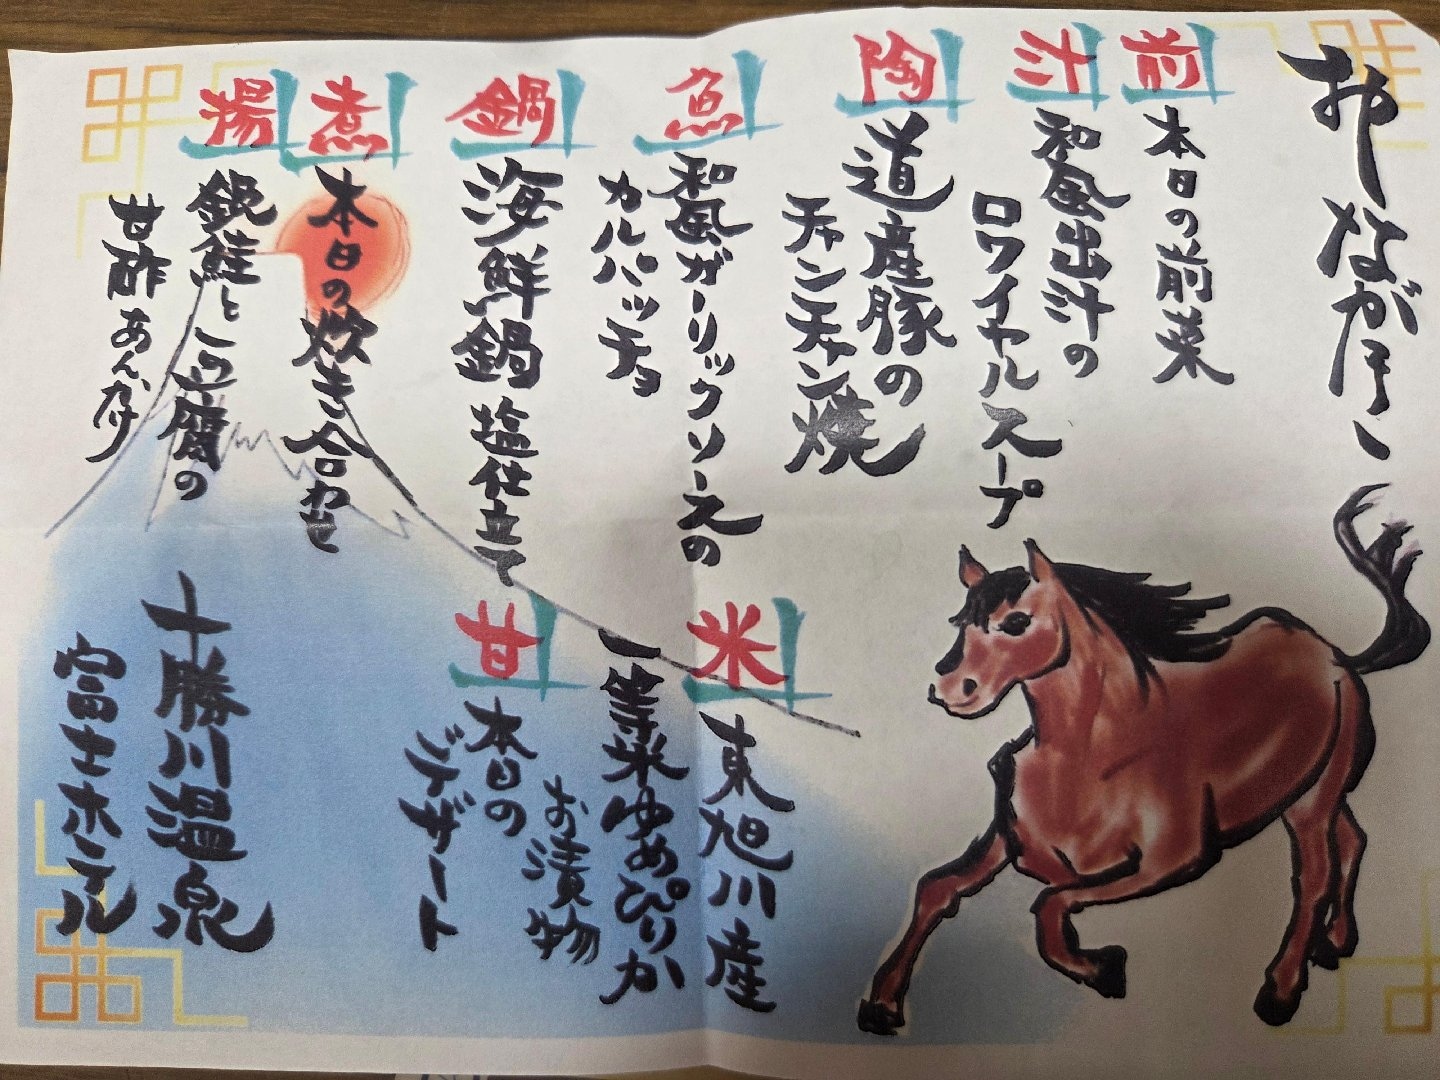 おしながき
前
本日の前菜
汁
和風出汁の
ロワイヤルスープ
陶
道産豚の
チャンチャン焼
魚
和風ガーリックソースの
カルパッチョ
鍋
海鮮鍋 塩仕立て
煮
本日の炊き合わせ
揚
銀鮭と豆腐の
甘酢あんかけ
米
東旭川産
一等米ゆめぴりか
お漬物
甘
本日の
デザート
十勝川温泉
富士ホテル